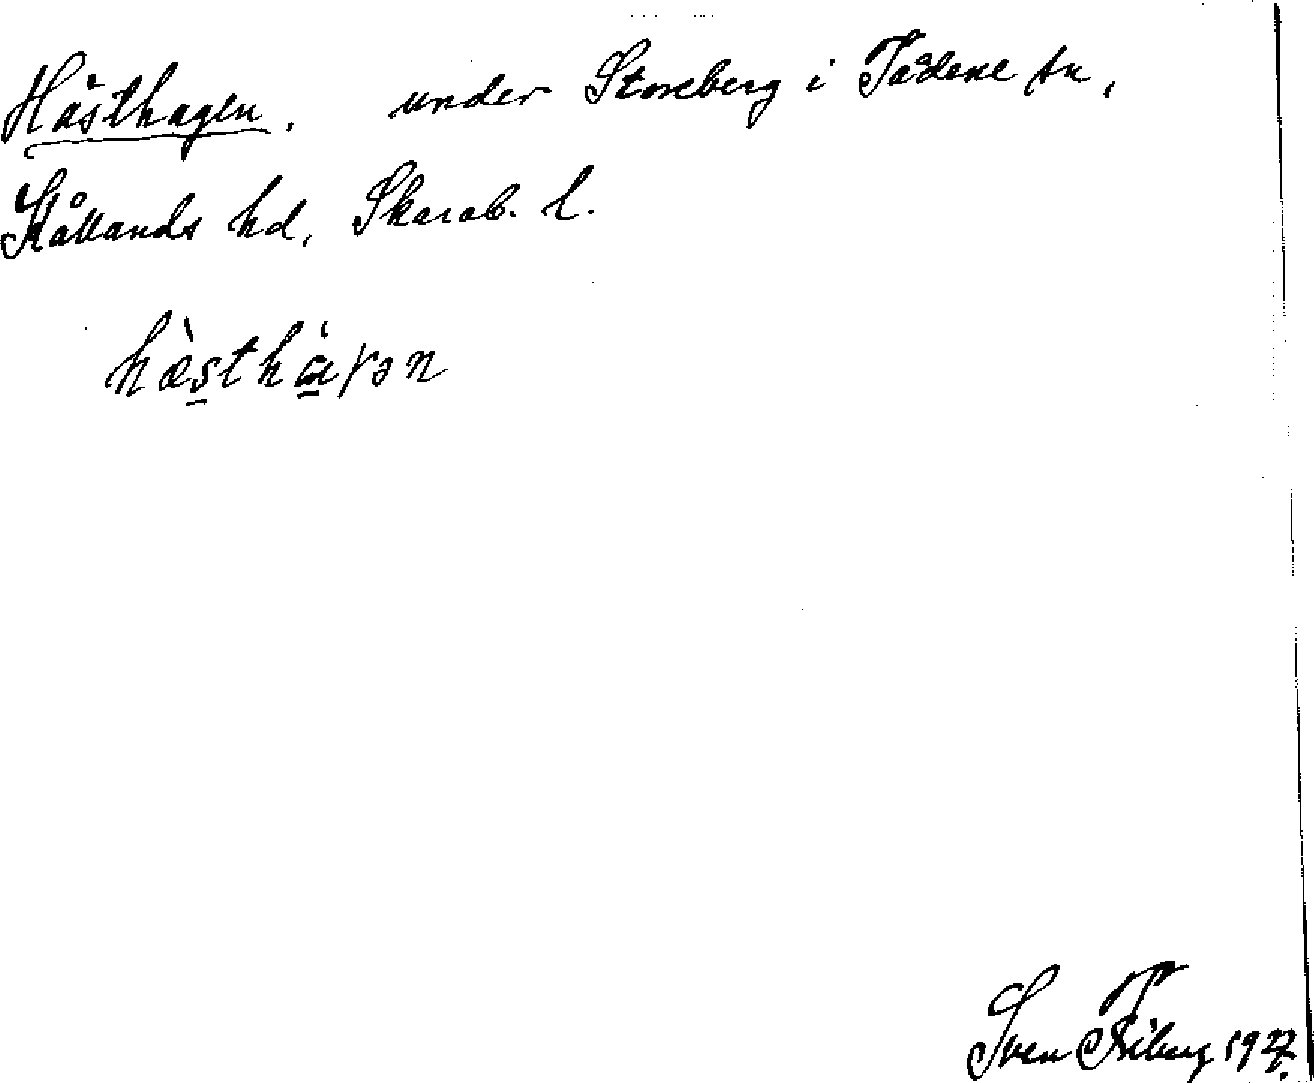 Hästhagen. under Storeberg i Tådene sn,
Kållands hd, Skarab. l.
hæ̀sthàγən
Sven Friberg 1927.